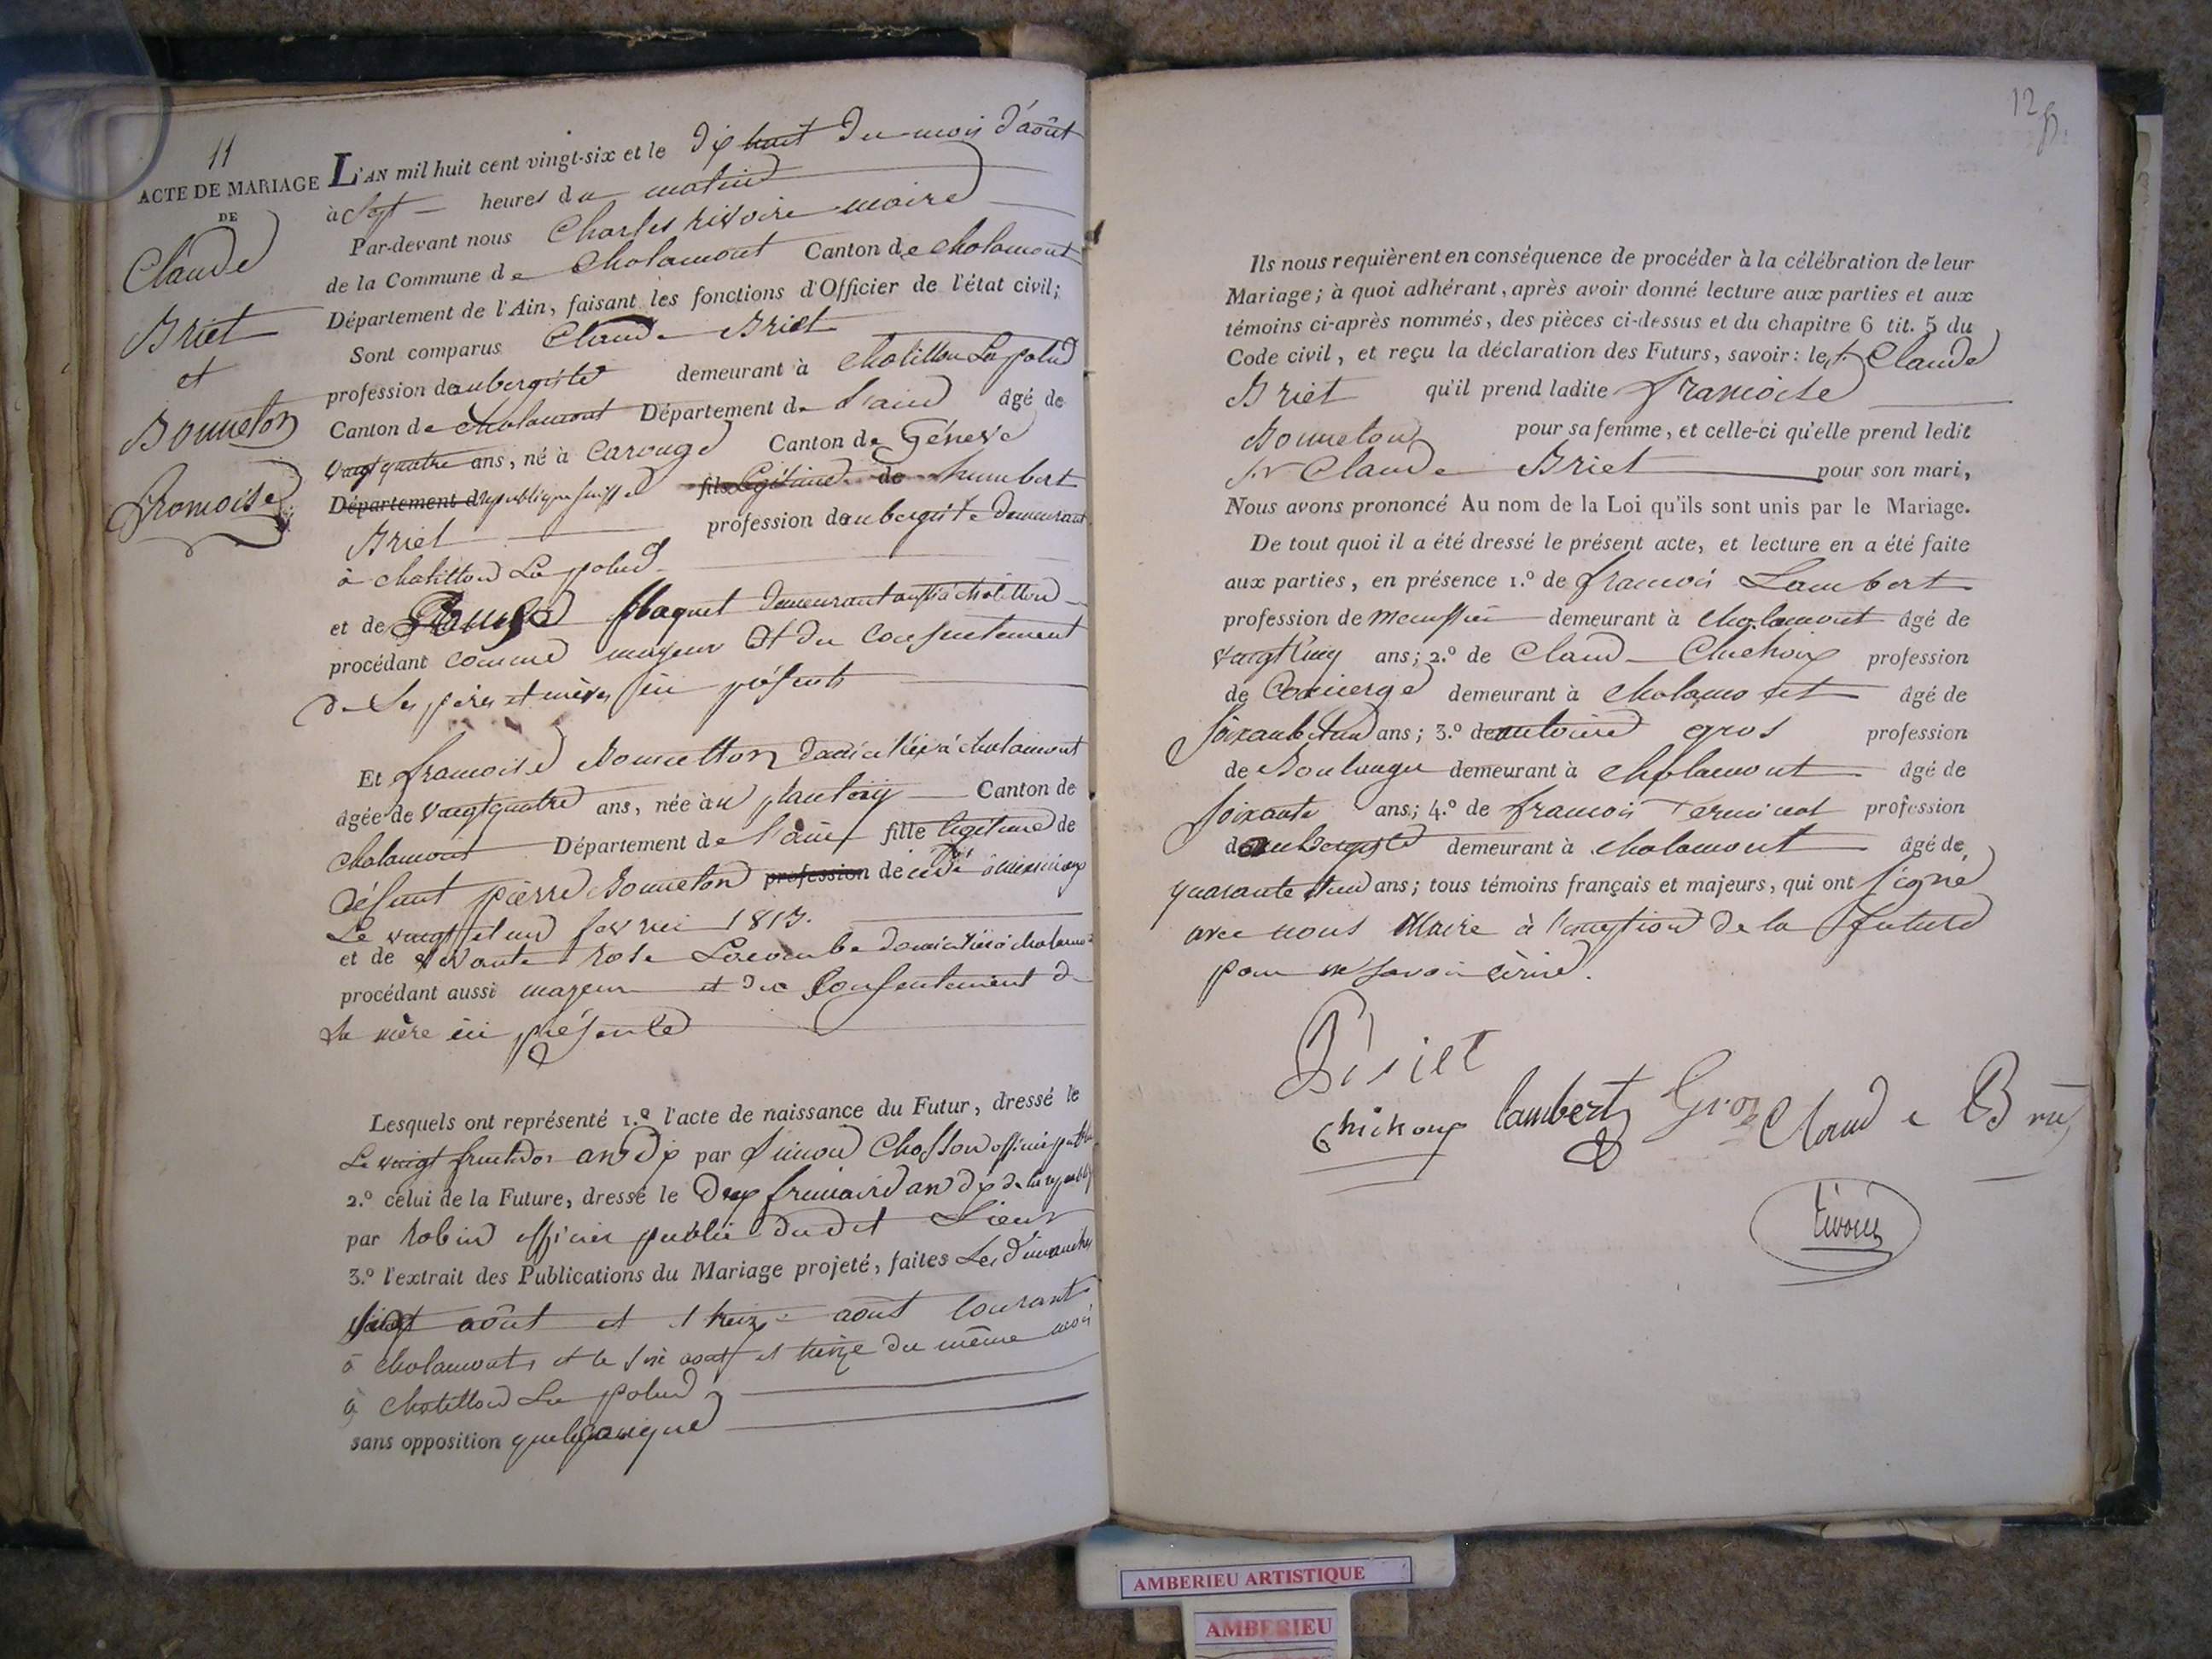 11
ACTE DE MARIAGE
DE
Claude
Briet
et
Bonneton
francoise
L'AN mil huit cent vingt-six et le dix huit du mois d'août
à sept heures du matin
Par-devant nous Charles rivoire maire
de la Commune de Chalamont Canton de chalamont
Département de l'Ain, faisant les fonctions d'Officier de l'état civil;
Sont comparus Claude Briet
profession de aubergiste demeurant à chatillon La palud
Canton de chalamont Département de l'ain âgé de
vingt quatre ans, né à Carouge Canton de Génève
Département d republique suisse fils légitime de humbert
Briet profession de aubergiste demeurant
à chatillon La palud
et de flaquet demeurant aussi à chatillon
procédant comme majeur et du consentement
de Ses père et mère ici présents
Et francoise Bonnetton domiciliée à chalamont
âgée de vingt quatre ans, née au plantay Canton de
chalamont Département de l'ain fille légitime de
défunt pierre Bonneton profession de décédé à
Le vingt et un fevrier 1813.
et de vivante rose Lacombe domiciliée à chalamont
procédant aussi majeur et du Consentement de
Sa mère ici présente
Lesquels ont représenté 1.º l'acte de naissance du Futur, dressé le
Le vingt fructidor an dix par Simon Chosson officier public
2.º celui de la Future, dressé le Dix frimaire an dix de la republiq
par robin officier public dudit Lieu
3.º l'extrait des Publications du Mariage projeté, faites Les dimanches
août et treize août Courant
à chalamont, et le six août et treize du même mois
à chatillon La palud
sans opposition quelconque
12
Ils nous requièrent en conséquence de procéder à la célébration de leur
Mariage; à quoi adhérant, après avoir donné lecture aux parties et aux
témoins ci-après nommés, des pièces ci-dessus et du chapitre 6 tit. 5 du
Code civil, et reçu la déclaration des Futurs, savoir: le s.r Claude
Briet qu'il prend ladite francoise
Bonneton pour sa femme, et celle-ci qu'elle prend ledit
s.r Claude Briet pour son mari,
Nous avons prononcé Au nom de la Loi qu'ils sont unis par le Mariage.
De tout quoi il a été dressé le présent acte, et lecture en a été faite
aux parties, en présence 1.º de francois Lambert
profession de menusier demeurant à chalamont âgé de
vingt cinq ans; 2.º de Claude Chichoux profession
de Concierge demeurant à chalamont âgé de
soixante et un ans; 3.º de antoine gros profession
de Boulanger demeurant à chalamont âgé de
soixante ans; 4.º de francois profession
de aubergiste demeurant à chalamont âgé de
quarante et un ans; tous témoins français et majeurs, qui ont signé
avec nous Maire à l'exception de la future
pour ne savoir ecrire.
Briet
Chichoux lambert Gros Claude Briet
rivoire
AMBERIEU ARTISTIQUE
AMBERIEU